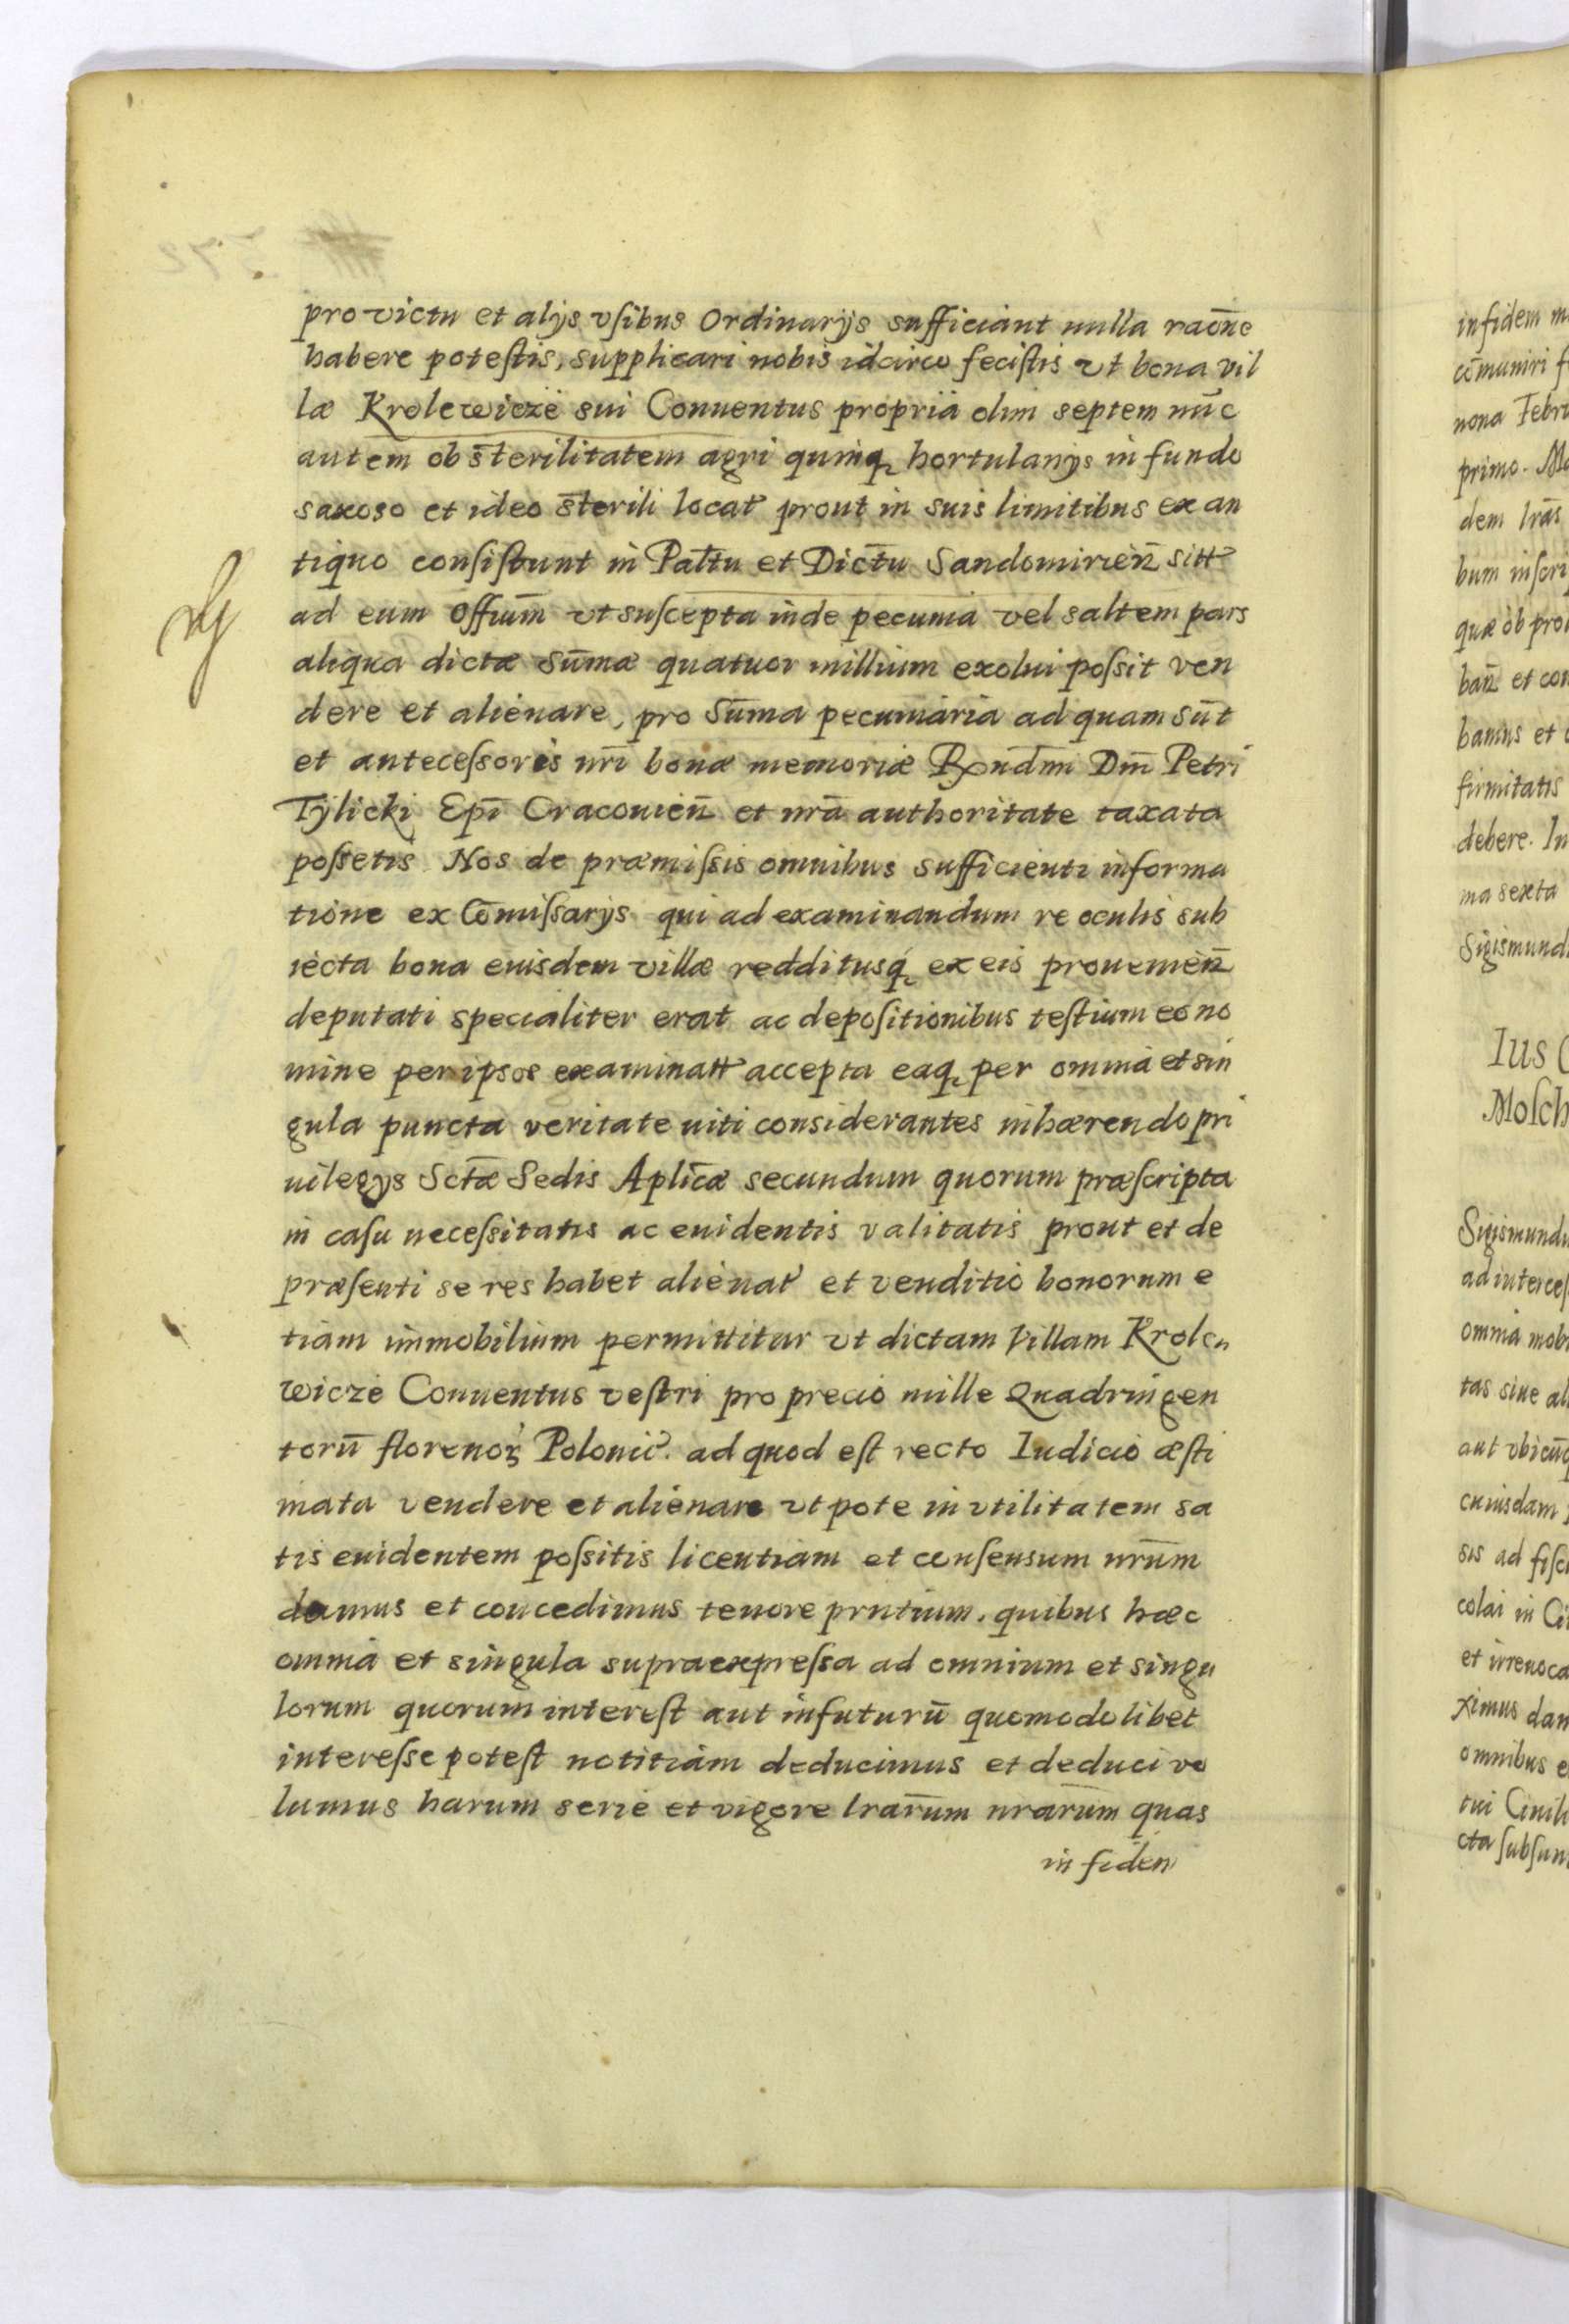 pro victu et alijs vsibus Ordinarijs sufficiant nulla raōne
habere potestis, supplicari nobis idcirco fecistis vt bona vil
læ Krolewicze sui Conuentus propria olim septem nūc
autem ob sterilitatem agri quinq hortulanijs in fundo
saxoso et ideo sterili locat prout in suis limitibus ex an
tiquo consistunt in Paltu et Dictu Sandomirien sitt
ad eum Offium vt suscepta inde pecunia vel saltem pars
aliqua dictæ sūmæ quatuor millium exolui possit ven
dere et alienare, pro sūma pecuniaria ad quam sūt
et antecessoris nrī bonæ memoriæ Rndmi Dni Petri
Tylicki Epī Cracouien et nrā authoritate taxata
possetis Nos de præmissis omnibus sufficienti informa
tione ex Cōmissarijs qui ad examinandum re oculis sub
iecta bona eiusdem villæ redditusq ex eis prouenien
deputati specialiter erat ac depositionibus testium eo no
mine per ipsos examinatt accepta eaq per omnia et sin
gula puncta veritate niti considerantes inhærendo pri
uilegijs Sctæ Sedis Aplicæ secundum quorum præscripta
in casu necessitatis ac euidentis valitatis prout et de
præsenti se res habet alienat et venditio bonorum e
tiam immobilium permittitur vt dictam Villam Krole
wicze Conuentus vestri pro precio mille Quadringen
torū florenor Polonic. ad quod est recto Iudicio æsti
mata vendere et alienare vt pote in vtilitatem sa
tis euidentem possitis licentiam et consensum nrūm
damus et concedimus tenore pntium. quibus hæc
omnia et singula supraexpressa ad omnium et singu
lorum quorum interest aut infuturū quomodolibet
interesse potest notitiam deducimus et deduci vo
lumus harum serie et vigore lrarum nrarum quas
in fidem
infidem
cōmuniri
nona Febru
primo.
dem lrās
bum inscri
quæ ob pro
ban et con
bamus et
firmitatis
debere. In
ma sexta
Sigismund
Ius
Mosch
Sigismundu
ad interces
omnia mob
tas siue al
aut vbicūq
cuiusdam
sis ad fisc
colai in Ci
et irreuoca
ximus dan
omnibus e
tui Ciuili
cta subsun